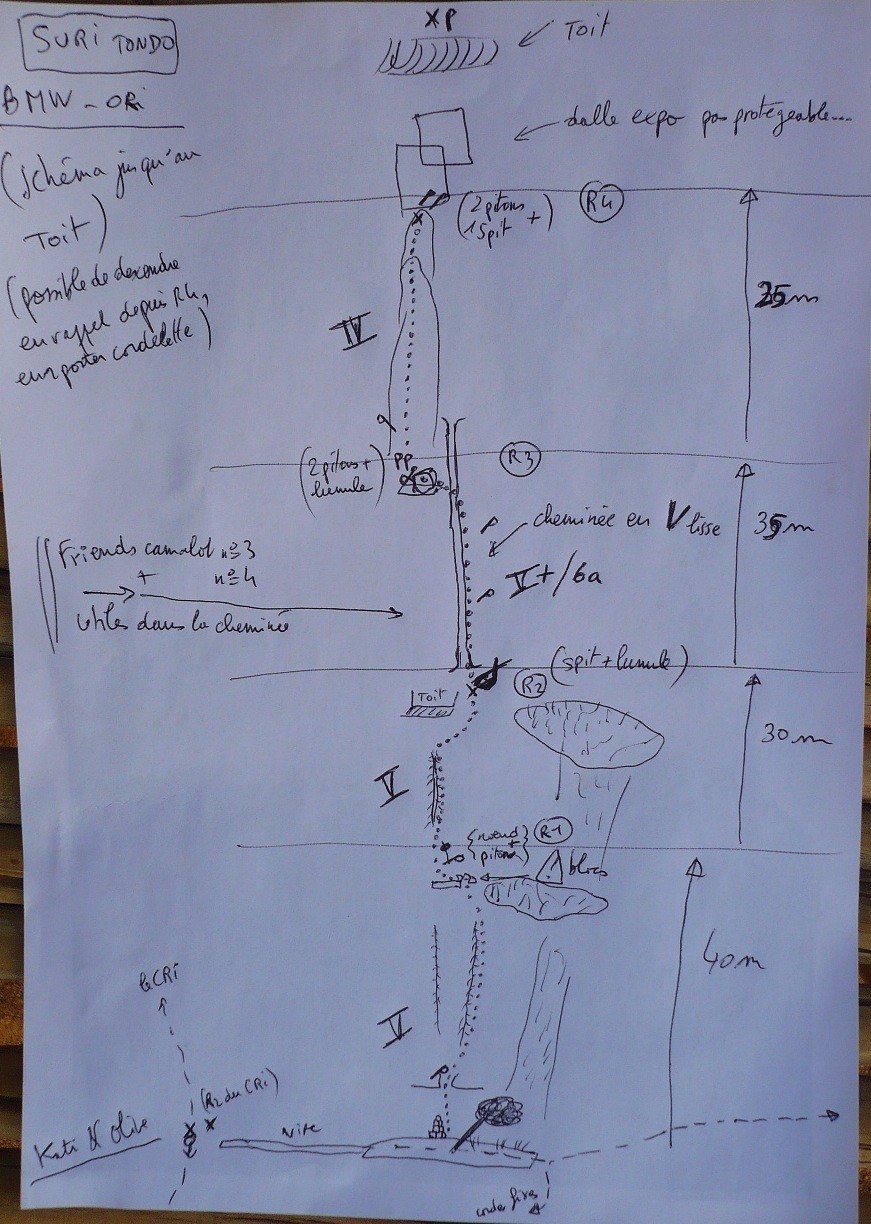 XP
Toit
SURI TONDO
BMW - ORi
dalle expo pas protégeable...
(schéma jusqu'au
Toit)
(2 pitons
1 Spit +)
R4
(possible de descendre
en rappel depuis R4,
emporter cordelette)
25m
IV
(2 pitons +
lunule)
PP
R3
cheminée en V lisse
35m
Friends camalot n°3
+ n°4
utiles dans la cheminée
V+/6a
(spit + lunule)
R2
Toit
30m
V
{noeud
+
piton}
R1
! blocs
40m
le CRi
V
(R2 du CRi)
Kati N Olive
Vire
cordes fixes